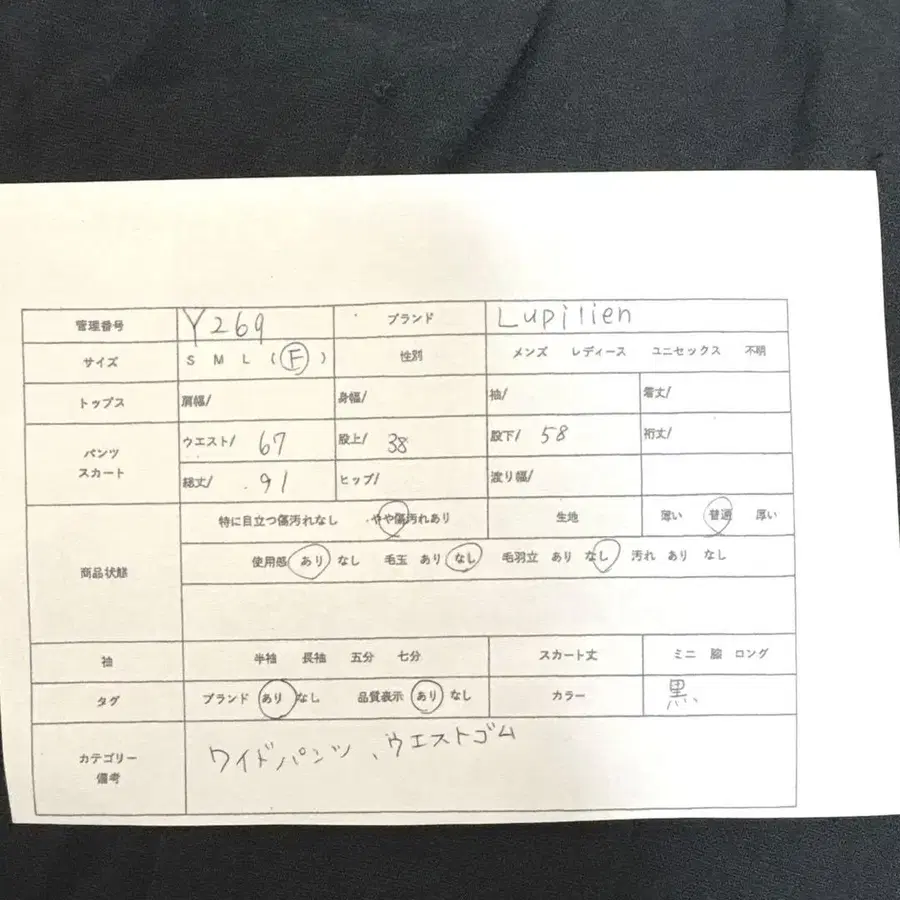 管理番号 Y269 ブランド Lupilien
サイズ S M L ( F ) 性別 メンズ レディース ユニセックス 不明
トップス 肩幅/ 身幅/ 袖/ 着丈/
パンツ ウエスト/ 67 股上/ 38 股下/ 58 裄丈/
スカート 総丈/ 91 ヒップ/ 渡り幅/
特に目立つ傷汚れなし やや傷汚れあり 生地 薄い 普通 厚い
商品状態 使用感 あり なし 毛玉 あり なし 毛羽立 あり なし 汚れ あり なし
袖 半袖 長袖 五分 七分 スカート丈 ミニ 膝 ロング
タグ ブランド あり なし 品質表示 あり なし カラー 黒
カテゴリー
備考 ワイドパンツ、ウエストゴム